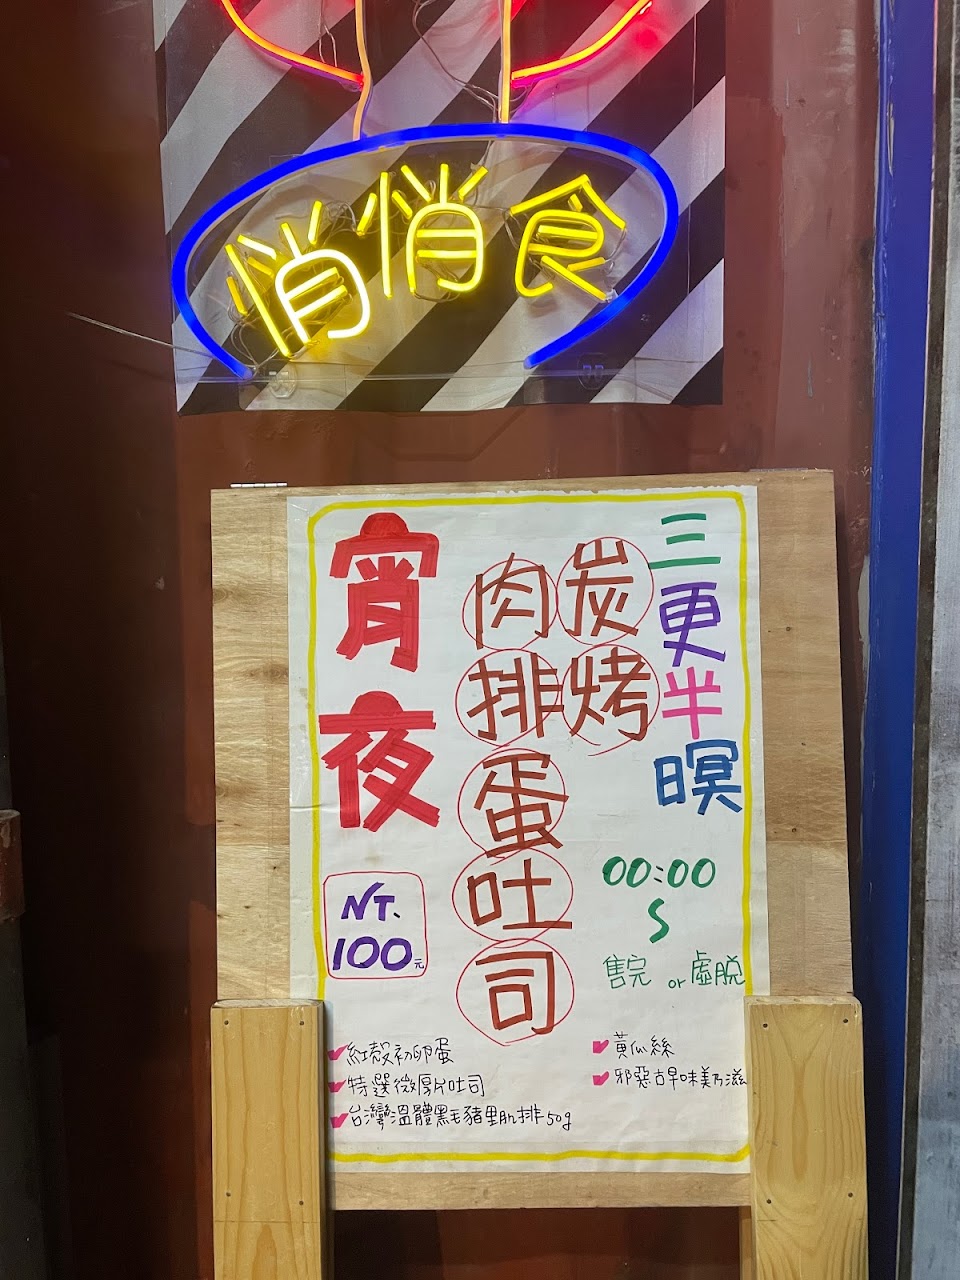 悄悄食
三更半暝
炭烤
肉排蛋吐司
宵夜
00:00
~
售完 or 虛脫
NT.
100元
紅殼初卵蛋
特選微厚片吐司
台灣溫體黑毛豬里肌排50g
黃瓜絲
邪惡古早味美乃滋